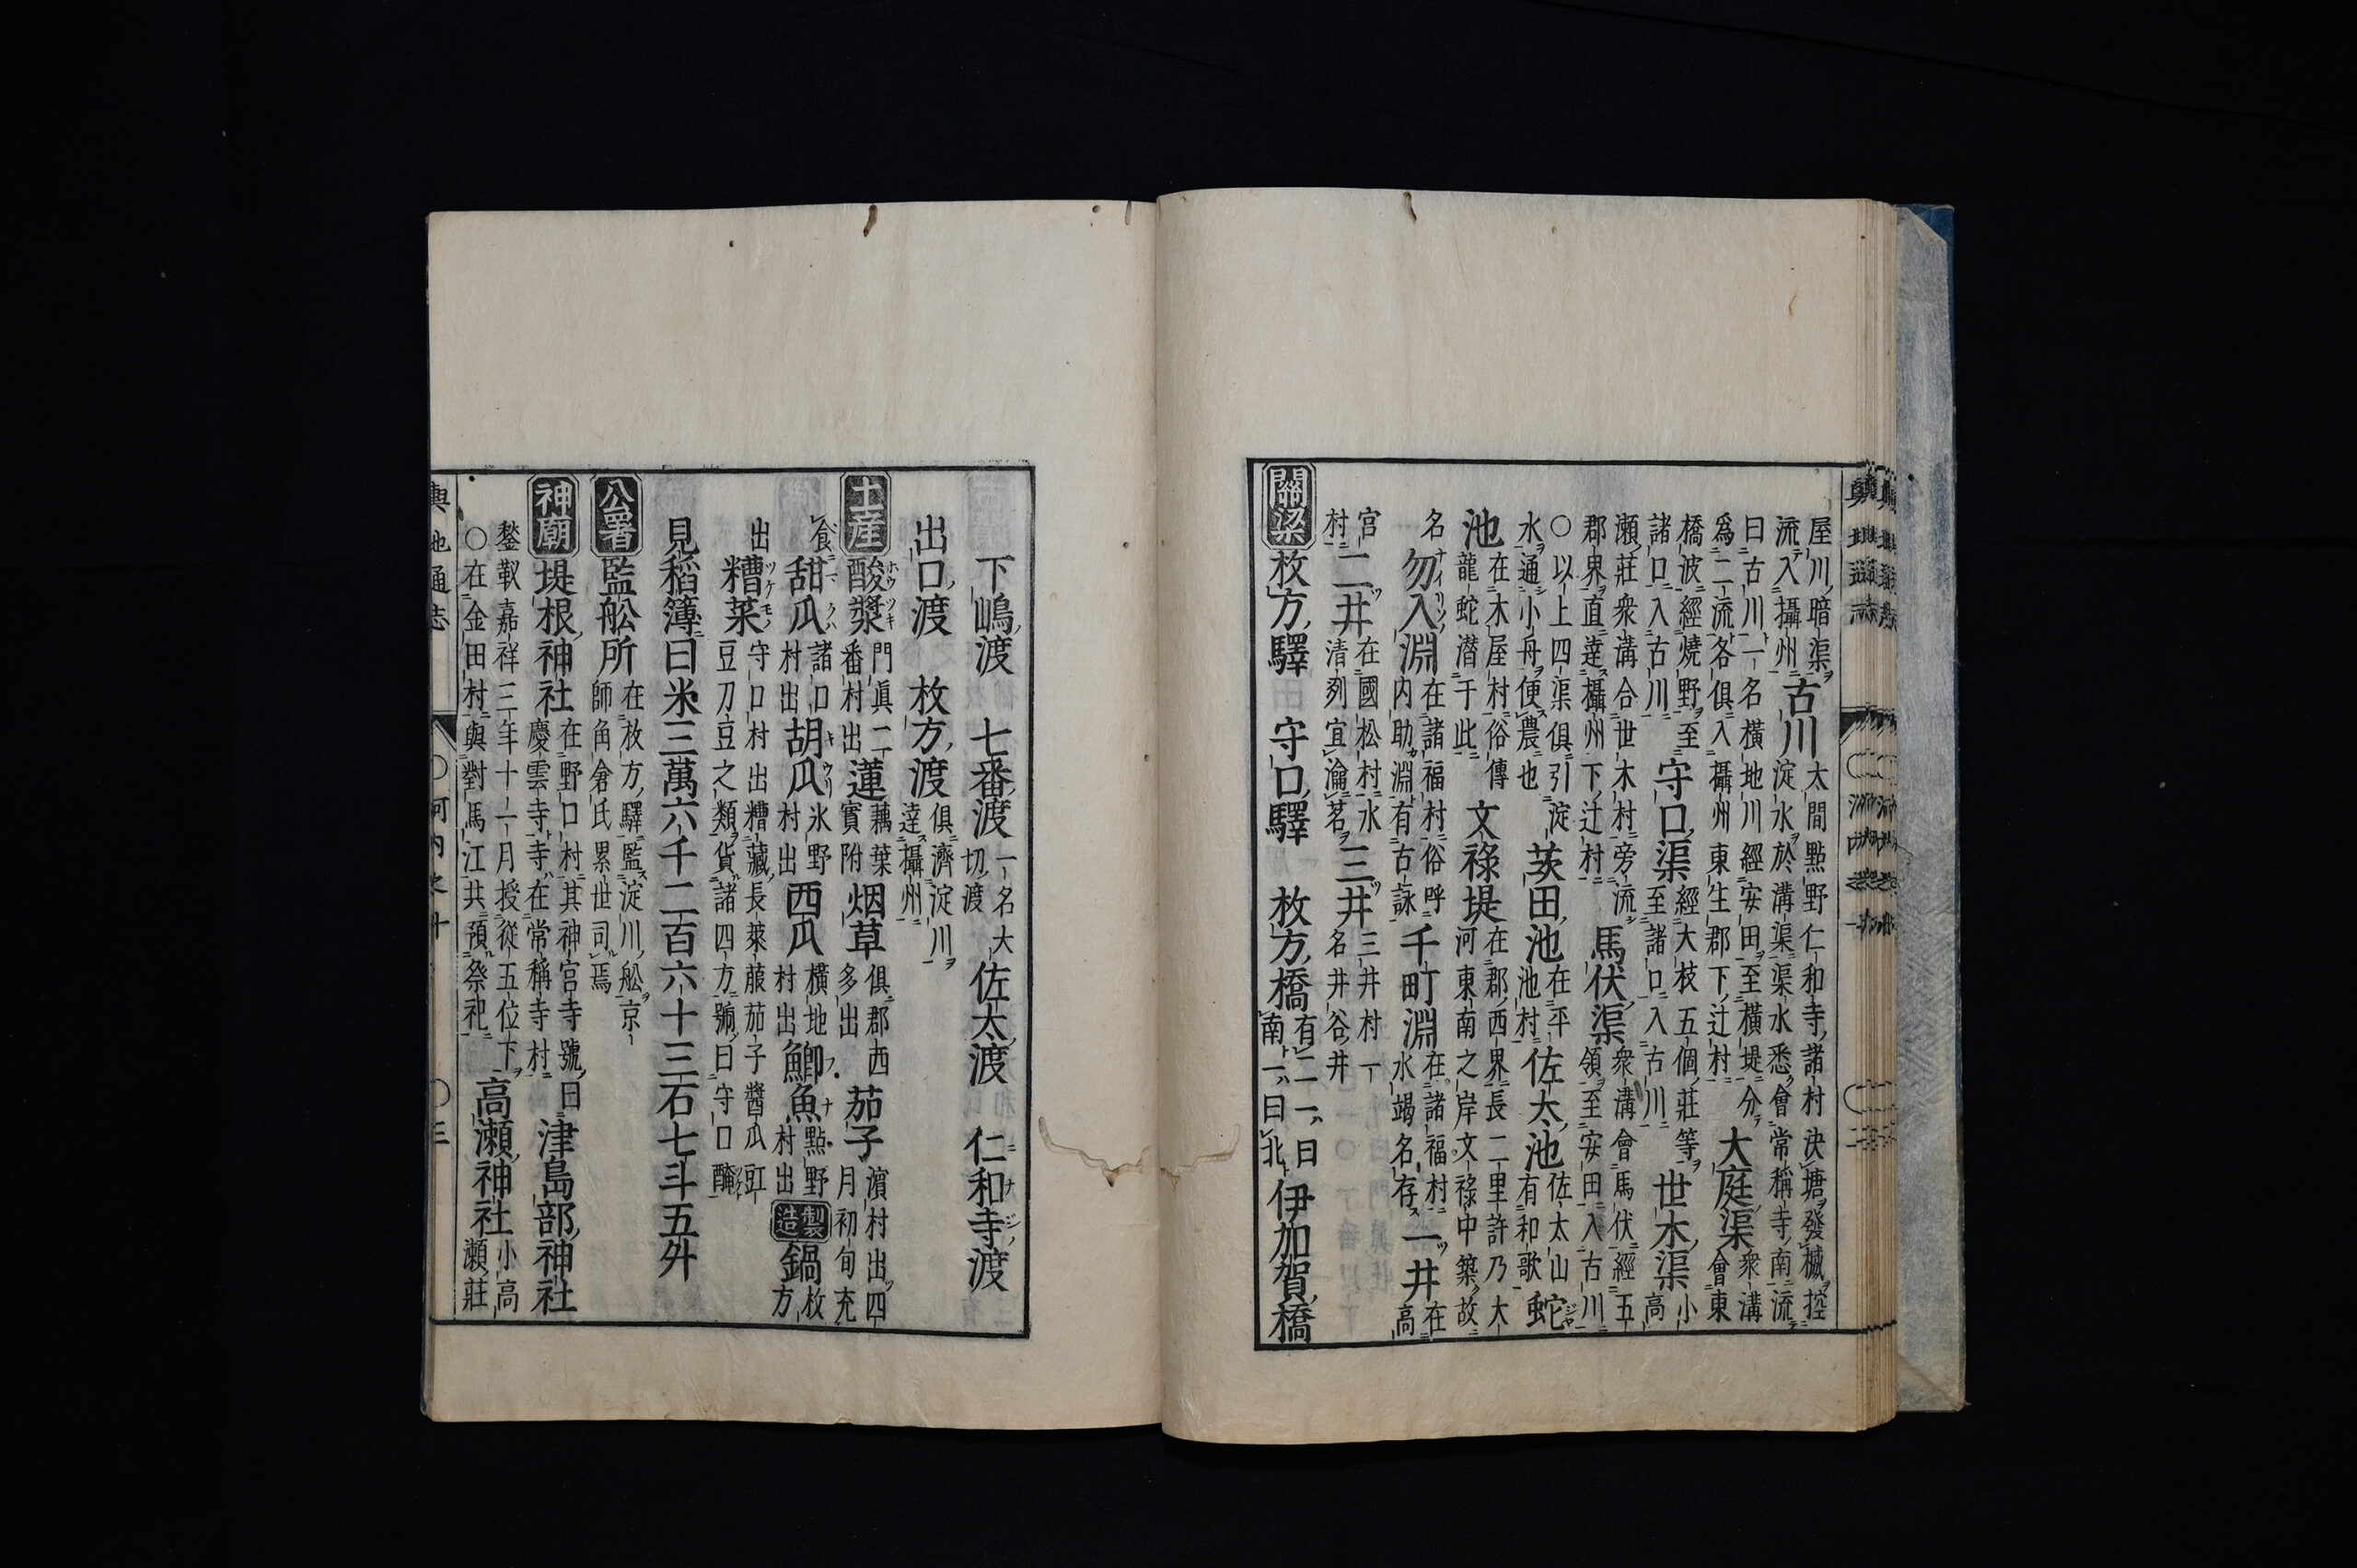 屋川暗渠古川太間點野仁和寺諸村決塘發樾控
流入攝州淀水於溝渠渠水悉會常稱寺南流
曰古川一名橫地川經安田至橫堤分大庭渠衆溝
爲二流各俱入攝州東生郡下辻村會東
橋波經燒野至守口渠經大枝五個莊等世木渠小
諸口入古川至諸口入古川高
瀬莊衆溝合世木村旁流馬伏渠衆溝會馬伏經五
郡界直達攝州下辻村領至安田入古川
○以上四渠俱引淀茨田池在平佐太池佐太山蛇
水通小舟便農也池村有和歌
池在木屋村俗傳文祿堤在郡西界長二里許乃大
龍蛇潜于此河東南之岸文祿中築故
名勿入淵在諸福村俗呼千町淵在諸福村一井在
內助淵有古詠水竭名存高
宮二井在國松村水三井三井村一
村淸列宜瀹茗名井谷井
關梁枚方驛守口驛枚方橋有二一曰伊加賀橋
南一曰北
下嶋渡七番渡一名大佐太渡仁和寺渡
切渡
出口渡枚方渡俱濟淀川
達攝州
土産酸漿門眞一蓮藕葉烟草俱郡西茄子濵村出四
番村出實附多出月初旬充
食甜瓜諸口胡瓜氷野西瓜橫地鯽魚點野製造鍋枚
村出村出村出村出方
出糟菜守口村出糟藏長萊菔茄子醬瓜豇
豆刀豆之類貨諸四方號曰守口醃
見稻簿曰米三萬六千二百六十三石七斗五舛
公署監舩所在枚方驛監淀川舩京
師角倉氏累世司焉
神廟堤根神社在野口村其神宮寺號曰津島部神社
慶雲寺寺在常稱寺村
嘉祥三年十一月授從五位下高瀬神社小高
○在金田村與對馬江共預祭祀瀬莊
輿地通志
河内之十
三